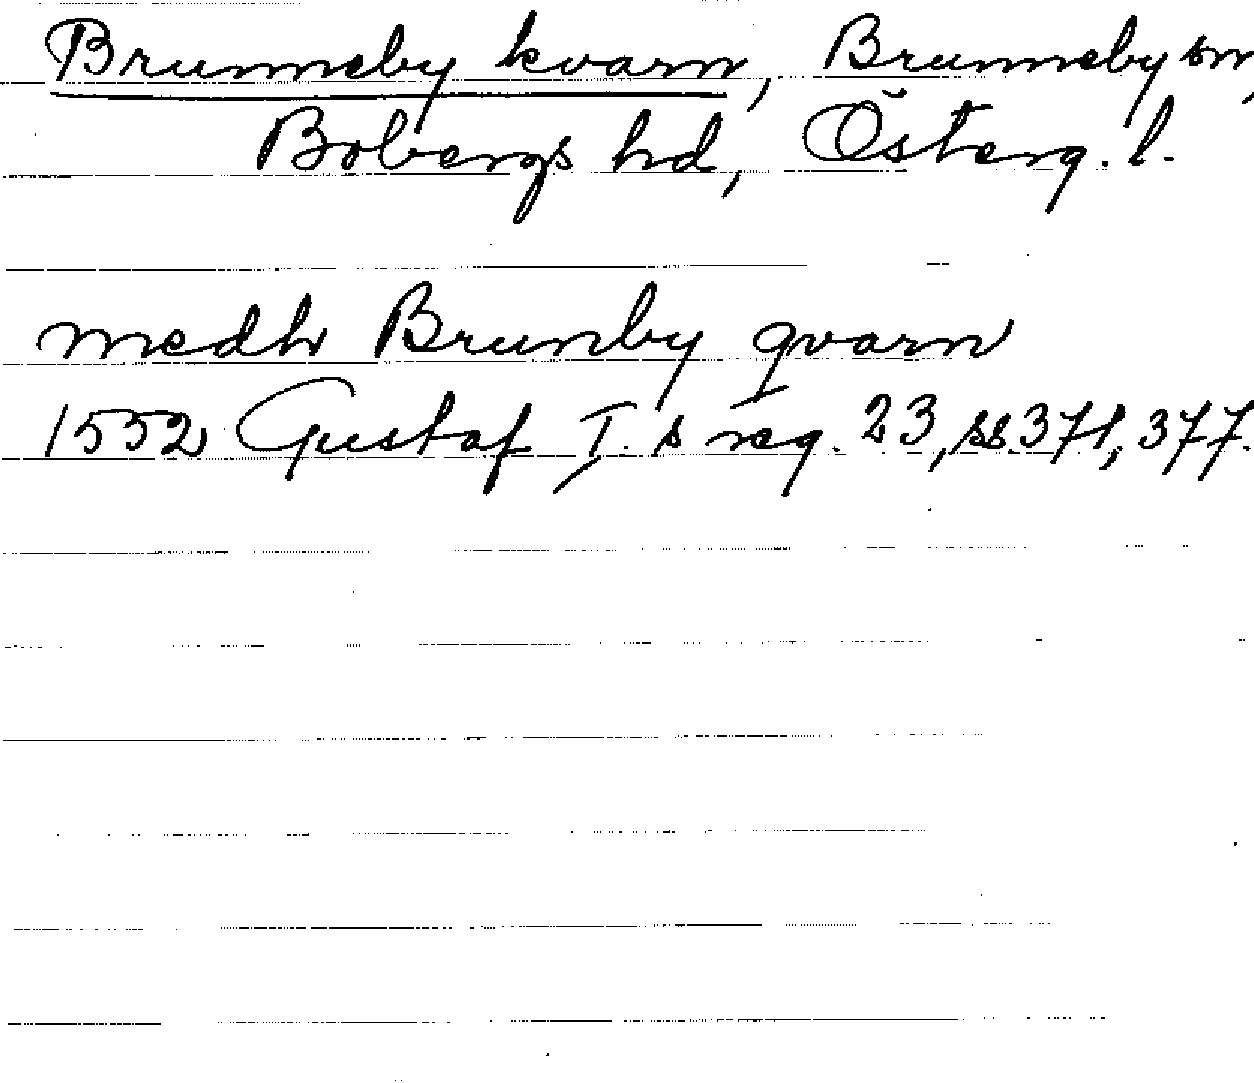 Brunneby kvarn, Brunneby sn,
Bobergs hd, Österg. l.
medh Brunby qvarn
1552 Gustaf I. s reg. 23, ss. 371, 377.